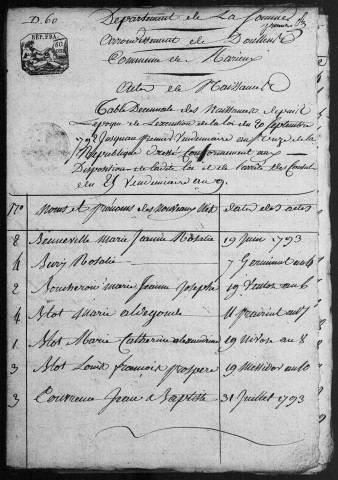 D. 60
Departement de La Somme
Arrondissement de Doullens
Commune de Marieux
RÉP. FRA.
Actes de Naissance
Table Decennale des Naissances depuis
l'epoque de l'execution de la loi du 20 septembre
1792 jusqu'au premier Vendemiaire an onze de la
Republique dressé conformement aux
Disposition de ladite loi et de l'arrêté des Consuls
du 25 Vendemiaire an 9.
Nos Noms et prénoms des Nouveaux Nés dates des actes
8 Benneville Marie Jeanne Rosalie 19 Juin 1793
4 Bury Rosalie 7 Germinal an 6
2 Boucheron Marie Jeanne Josephe 19 Ventos an 6
4 Blot Marie aldegonde 11 prairial an 7
1 Blot Marie Catherine alexandrine 29 Nivose an 8
3 Blot Louis françois prospere 19 Messidor an 10
3 Couvreur Jean Baptiste 31 Juillet 1793